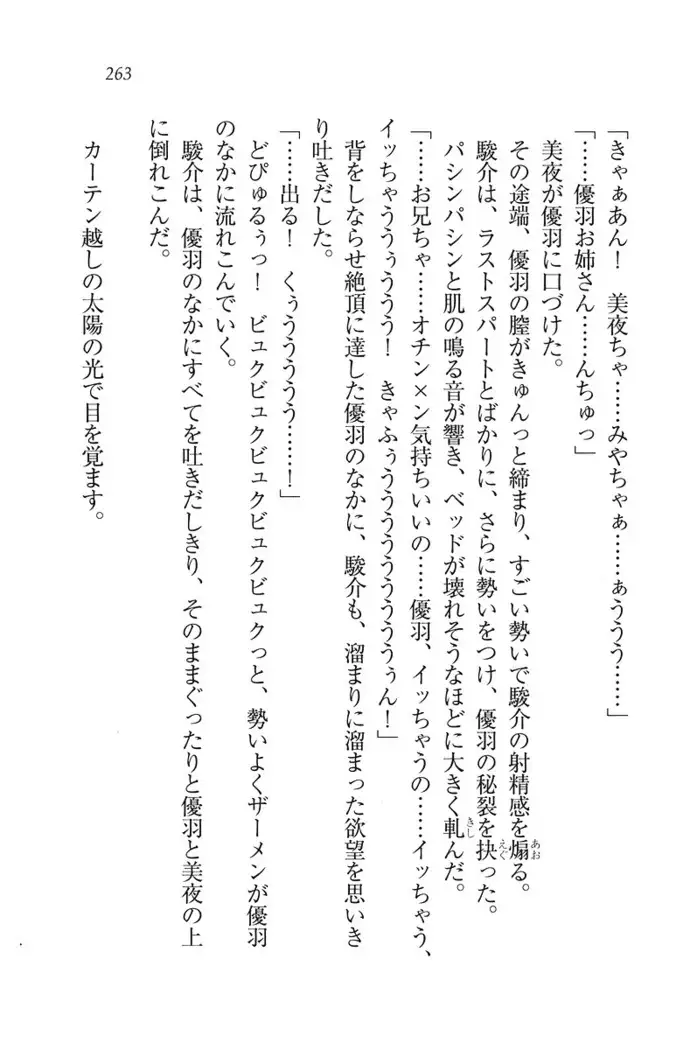 263
「きゃぁあん！　美夜ちゃ……みやちゃぁ……ぁううう……」
「……優羽お姉さん……んちゅっ」
美夜が優羽に口づけた。
その途端、優羽の膣がきゅんっと締まり、すごい勢いで駿介の射精感を煽る。
駿介は、ラストスパートとばかりに、さらに勢いをつけ、優羽の秘裂を抉った。
パシンパシンと肌の鳴る音が響き、ベッドが壊れそうなほどに大きく軋んだ。
「……お兄ちゃ……オチン×ン気持ちいいの……優羽、イッちゃうの……イッちゃう、
イッちゃううぅううう！　きゃふぅうううううううううぅん！」
背をしならせ絶頂に達した優羽のなかに、駿介も、溜まりに溜まった欲望を思いき
り吐きだした。
「……出る！　くぅううううう……！」
どぴゅるぅっ！　ビュクビュクビュクビュクっと、勢いよくザーメンが優羽
のなかに流れこんでいく。
駿介は、優羽のなかにすべてを吐きだしきり、そのままぐったりと優羽と美夜の上
に倒れこんだ。
カーテン越しの太陽の光で目を覚ます。